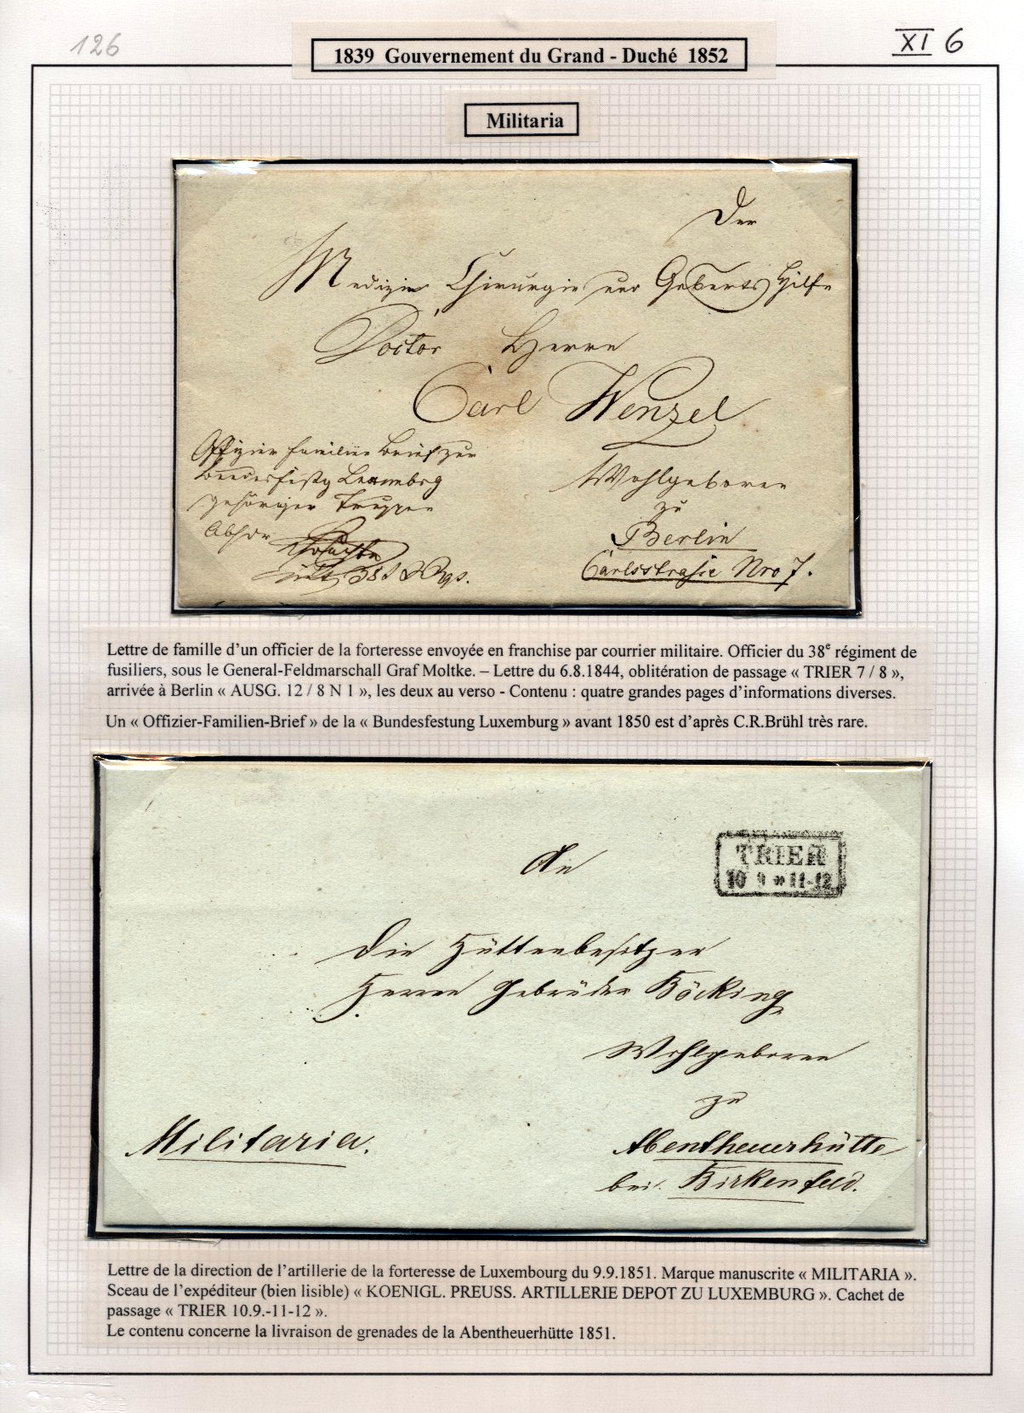 126
XI 6
1839 Gouvernement du Grand - Duché 1852
Militaria
Der
Medizin Chirurgie und Geburts Hilfe
Doctor Herrn
Carl Wenzel
Wohlgeboren
zu
Berlin
Carlsstraße Nro 7.
Offizier Familien Brief zur
Bundesfestg Luxembrg
gehöriger Truppen
Absdr
38t Rgs.
Lettre de famille d'un officier de la forteresse envoyée en franchise par courrier militaire. Officier du 38e régiment de
fusiliers, sous le General-Feldmarschall Graf Moltke. – Lettre du 6.8.1844, oblitération de passage « TRIER 7 / 8 »,
arrivée à Berlin « AUSG. 12 / 8 N 1 », les deux au verso - Contenu : quatre grandes pages d'informations diverses.
Un « Offizier-Familien-Brief » de la « Bundesfestung Luxemburg » avant 1850 est d'après C.R.Brühl très rare.
TRIER
10 9 11-12
An
die Hüttenbesitzer
Herren Gebrüder Böcking
Wohlgeboren
zu
Abentheuerhütte
bei Birkenfeld.
Militaria.
Lettre de la direction de l'artillerie de la forteresse de Luxembourg du 9.9.1851. Marque manuscrite « MILITARIA ».
Sceau de l'expéditeur (bien lisible) « KOENIGL. PREUSS. ARTILLERIE DEPOT ZU LUXEMBURG ». Cachet de
passage « TRIER 10.9.-11-12 ».
Le contenu concerne la livraison de grenades de la Abentheuerhütte 1851.